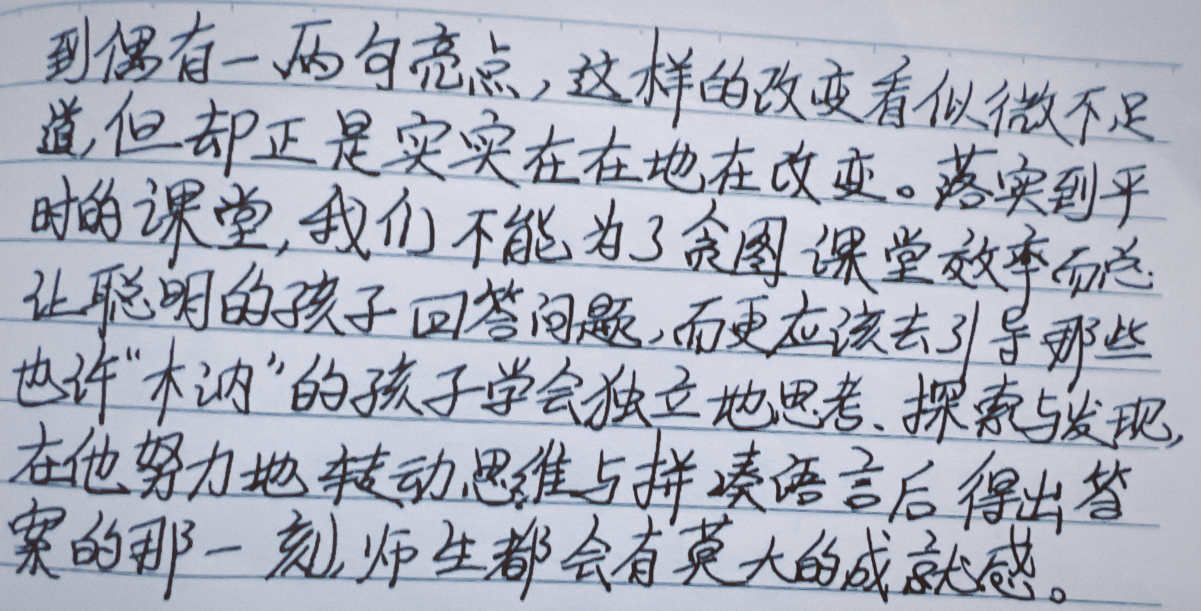 到偶有一两句亮点,这样的改变看似微不足
道,但却正是实实在在地在改变。落实到平
时的课堂,我们不能为了贪图课堂效率而总
让聪明的孩子回答问题,而更应该去引导那些
也许“木讷”的孩子学会独立地思考、探索与发现,
在他努力地转动思维与拼凑语言后得出答
案的那一刻,师生都会有莫大的成就感。